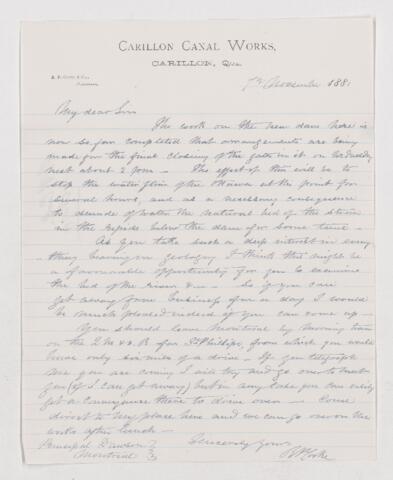 CARILLON CANAL WORKS,
CARILLON, QUE.
7th November 1881
My dear Sir
The work on the new dam here is
now so far completed that arrangements are being
made for the final closing of the gates in it on Wednesday
next about 2 PM — The effect of this will be to
stop the water flow of the Ottawa at this point for
several hours, and as a necessary consequence
to denude of water the natural bed of the stream
in the rapids below the dam for some time —
As you take such a deep interest in every
thing bearing on geology I think this might be
a favourable opportunity for you to examine
the bed of the river &c — So if you can
get away from business for a day I would
be much pleased indeed if you can come up —
You should leave Montreal by morning train
on the Q M & O. R for St Phillips, from which you would
have only six miles of a drive — If you telegraph
me you are coming I will try and go over to meet
you (if I can get away) but in any case you can easily
get a conveyance there to drive over — Come
direct to my place here and we can go over the
works after lunch —
Sincerely yours
Principal Dawson
Montreal